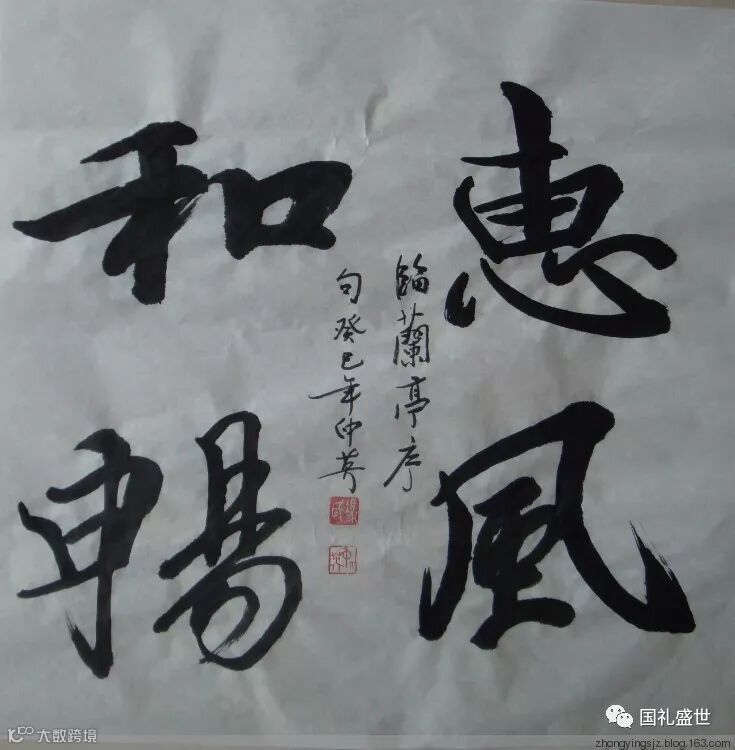 惠風
和暢
臨蘭亭序
句癸巳年仲英
国礼盛世
大数跨境
zhongyingsjz.blog.163.com